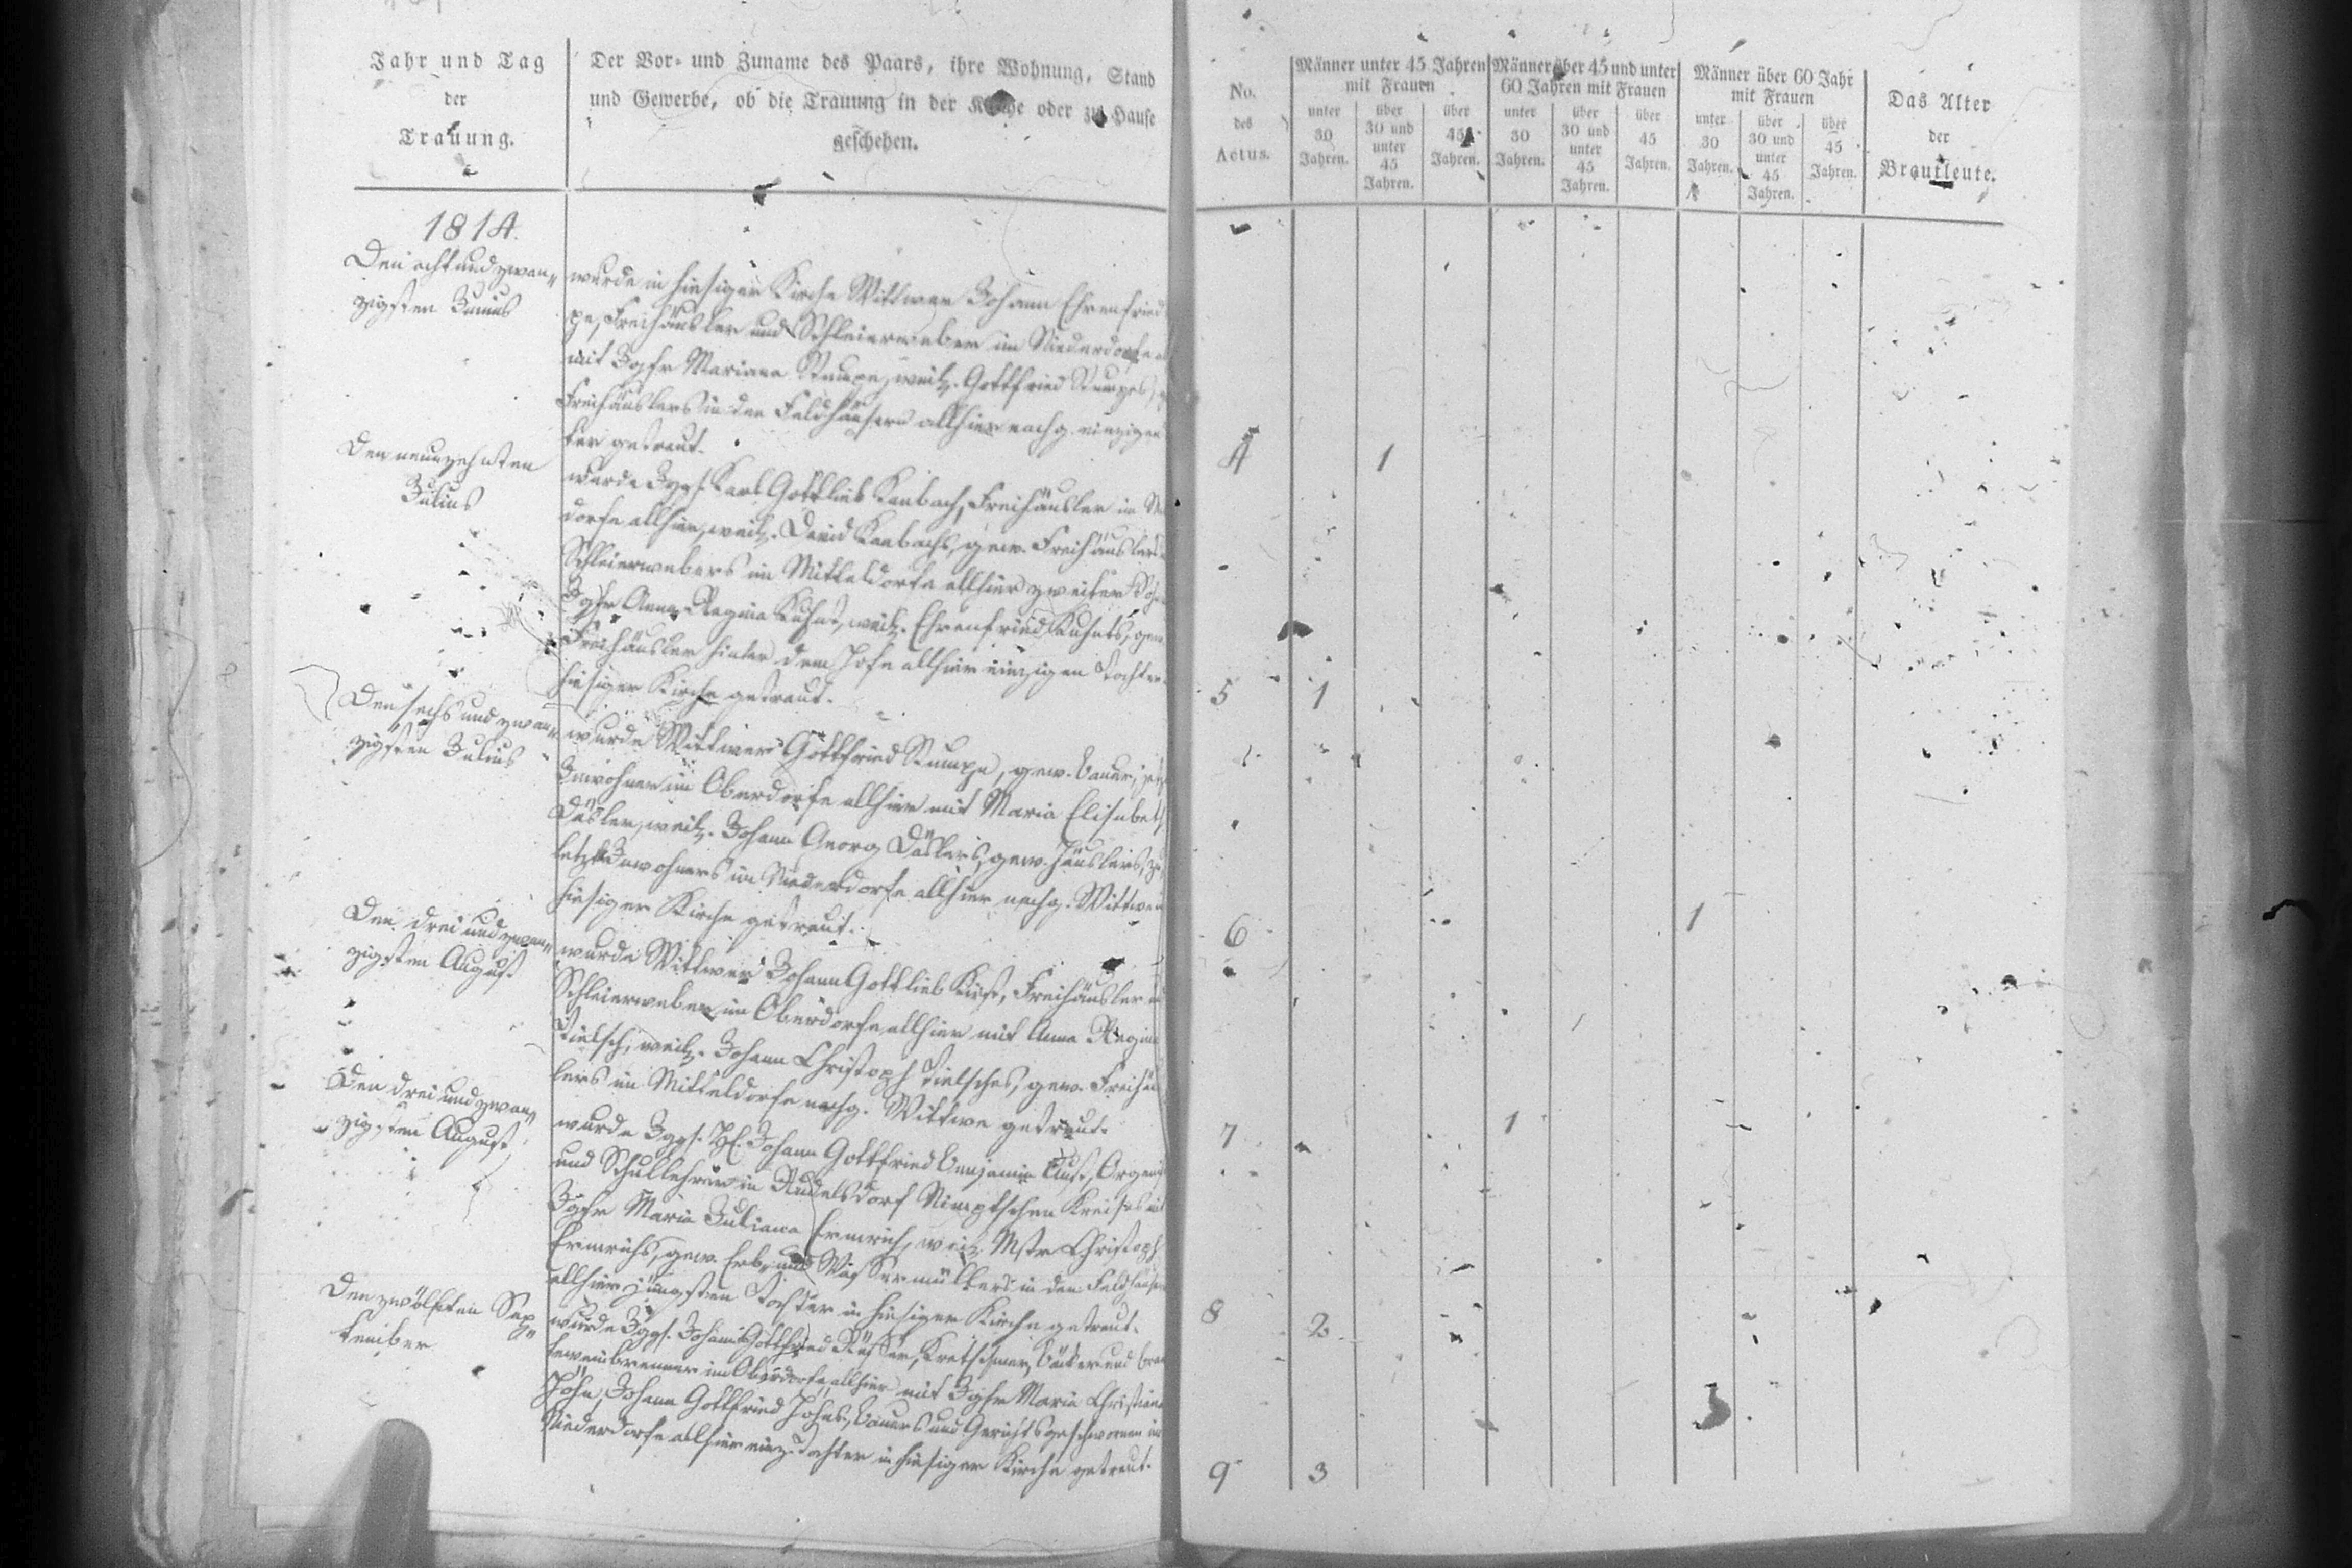 Jahr und Tag
der
Trauung.
Der Vor- und Zuname des Paars, ihre Wohnung, Stand
und Gewerbe, ob die Trauung in der Kirche oder zu Hause
geschehen.
1814.
Den acht und zwan„
zigsten Junius
wurde in hiesiger Kirche Wittwer Johann Ehrenfried
pe, Freihäusler und Schleierweber im Niederdorfe
mit Jgfr Mariana Stumpe, weil. Gottfried Stumpes,
Freihäuslers in den Feldhäusern allhier nachg. einzigen
ter getraut.
Den neunzehnten
Julius
wurde Jggs. Karl Gottlieb Kanbach, Freihäusler im
dorfe allhier, weil. David Kanbachs, gew. Freihäuslers
Schleierwebers im Mitteldorfe allhier zweiter Sohn
Jgfr Anna Regina Kuhnt, weil. Ehrenfried Kuhnts, gew.
Freihäusler hinter dem Hofe allhier einzigen Tochter
hiesiger Kirche getraut.
Den sechs und zwan„
zigsten Julius
wurde Wittwer Gottfried Stumpe, gew. Bauer, jetz
Inwohner im Oberdorfe allhier mit Maria Elisabet
Däsler, weil. Johann Georg Däslers, gew. Häuslers, zu
letzt Inwohners im Niederdorfe allhier nachg. Wittwe
hiesiger Kirche getraut.
Den drei und zwan„
zigsten August
wurde Wittwer Johann Gottlieb Freihäusler
Schleierweber im Oberdorfe allhier mit Anna Regin
Tielsch, weil. Johann Christoph Tielsches, gew. Freihäu
lers im Mitteldorfe nachg. Wittwe getraut.
Den drei und zwan„
zigsten August
wurde Jggs. H. Johann Gottfried Benjamin Aust, Organi
und Schullehrer in Rudelsdorf Nimptschen Kreises mit
Jgfr Maria Juliana Ermrich, weil. Mstr Christoph
Ermrichs, gew. Erb- und Wassermüllers in den Feldhäuser
allhier jüngsten Tochter in hiesiger Kirche getraut.
Den zwölften Sep„
tember
wurde Jggs. Johann Gottfried Kretschmer, Bäcker und Bran
teweinbrenner im Oberdorfe allhier mit Jgfr Maria Christiana
John, Johann Gottfried Johns, Bauers und Gerichtsgeschwornen im
Niederdorfe allhier einz. Tochter in hiesiger Kirche getraut.
No.
des
Actus.
Männer unter 45 Jahren
mit Frauen
unter
30
Jahren.
über
30 und
unter
45
Jahren.
über
45
Jahren.
Männer über 45 und unter
60 Jahren mit Frauen
unter
30
Jahren.
über
30 und
unter
45
Jahren.
über
45
Jahren.
Männer über 60 Jahr
mit Frauen
unter
30
Jahren.
über
30 und
unter
45
Jahren.
über
45
Jahren.
Das Alter
der
Brautleute.
4 1
5 1
6 1
7 1
8 2
9 3